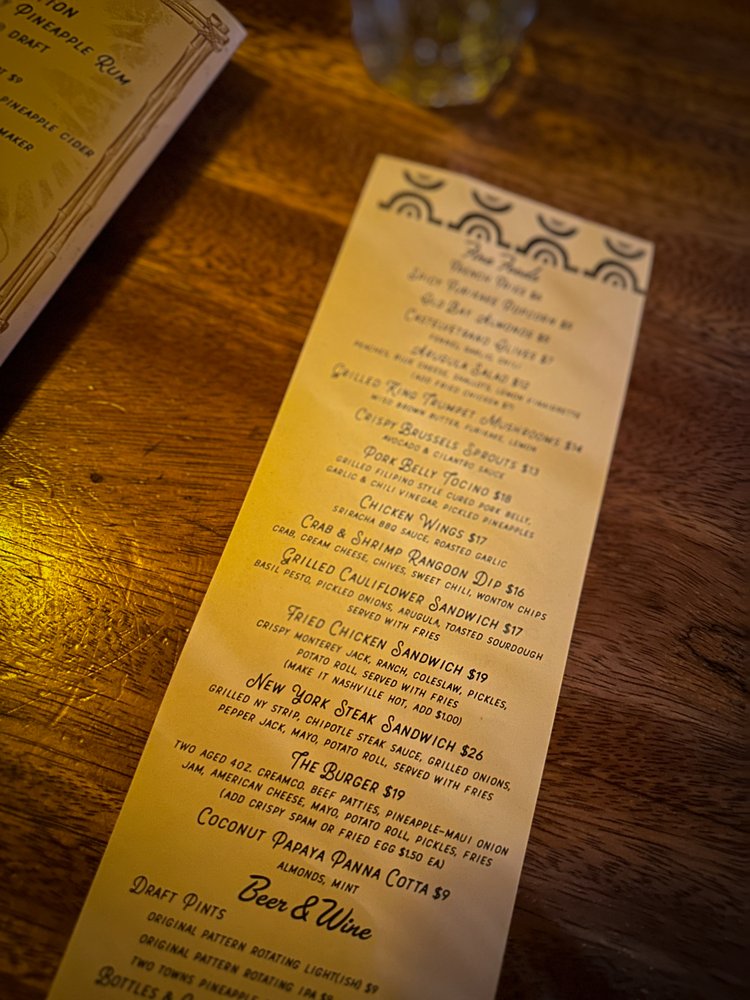 TON
PINEAPPLE RUM
DRAFT
$9
PINEAPPLE CIDER
MAKER
Fine Foods
FRENCH FRIES
SPICY FURIKAKE POPCORN
OLD BAY ALMONDS
CASTELVETRANO OLIVES $7
FENNEL, GARLIC, CHILI
ARUGULA SALAD $12
PEACHES, BLUE CHEESE, SHALLOTS, LEMON VINAIGRETTE
(ADD FRIED CHICKEN $7)
GRILLED KING TRUMPET MUSHROOMS $14
MISO BROWN BUTTER, FURIKAKE, LEMON
CRISPY BRUSSELS SPROUTS $13
AVOCADO & CILANTRO SAUCE
PORK BELLY TOCINO $18
GRILLED FILIPINO STYLE CURED PORK BELLY,
GARLIC & CHILI VINEGAR, PICKLED PINEAPPLES
CHICKEN WINGS $17
SRIRACHA BBQ SAUCE, ROASTED GARLIC
CRAB & SHRIMP RANGOON DIP $16
CRAB, CREAM CHEESE, CHIVES, SWEET CHILI, WONTON CHIPS
GRILLED CAULIFLOWER SANDWICH $17
BASIL PESTO, PICKLED ONIONS, ARUGULA, TOASTED SOURDOUGH
SERVED WITH FRIES
FRIED CHICKEN SANDWICH $19
CRISPY MONTEREY JACK, RANCH, COLESLAW, PICKLES,
POTATO ROLL, SERVED WITH FRIES
(MAKE IT NASHVILLE HOT, ADD $1.00)
NEW YORK STEAK SANDWICH $26
GRILLED NY STRIP, CHIPOTLE STEAK SAUCE, GRILLED ONIONS,
PEPPER JACK, MAYO, POTATO ROLL, SERVED WITH FRIES
THE BURGER $19
TWO AGED 4OZ. CREAMCO. BEEF PATTIES, PINEAPPLE-MAUI ONION
JAM, AMERICAN CHEESE, MAYO, POTATO ROLL, PICKLES, FRIES
(ADD CRISPY SPAM OR FRIED EGG $1.50 EA)
COCONUT PAPAYA PANNA COTTA $9
ALMONDS, MINT
Beer & Wine
DRAFT PINTS
ORIGINAL PATTERN ROTATING LIGHT(ISH) $9
ORIGINAL PATTERN ROTATING IPA $9
TWO TOWNS PINEAPPLE
BOTTLES &